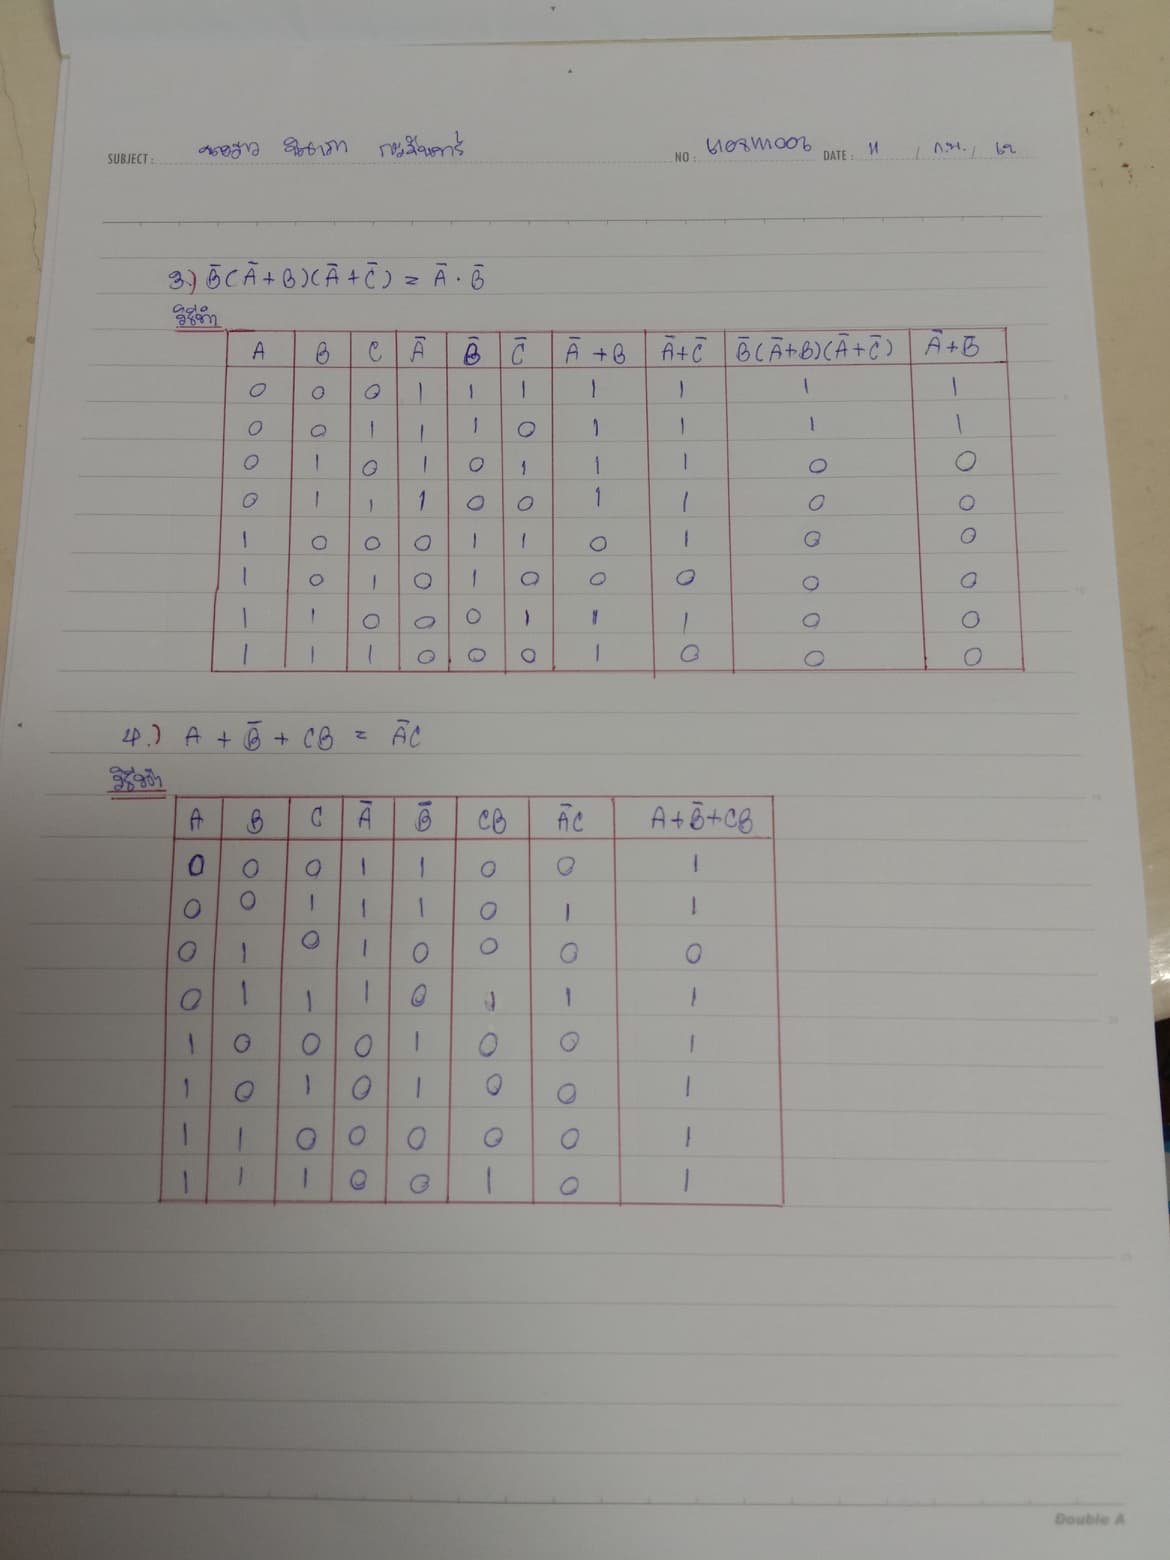 SUBJECT : NO : DATE : 11 / ก.พ. / ๖๒
3.) B̄(Ā+B)(Ā+C̄) = Ā·B̄
วิธีทำ
A B C Ā B̄ C̄ Ā+B Ā+C̄ B̄(Ā+B)(Ā+C̄) Ā+B̄
0 0 0 1 1 1 1 1 1 1
0 0 1 1 1 0 1 1 1 1
0 1 0 1 0 1 1 1 0 0
0 1 1 1 0 0 1 1 0 0
1 0 0 0 1 1 0 1 0 0
1 0 1 0 1 0 0 0 0 0
1 1 0 0 0 1 1 1 0 0
1 1 1 0 0 0 1 0 0 0
4.) A + B̄ + CB = ĀC
วิธีทำ
A B C Ā B̄ CB ĀC A+B̄+CB
0 0 0 1 1 0 0 1
0 0 1 1 1 0 1 1
0 1 0 1 0 0 0 0
0 1 1 1 0 1 1 1
1 0 0 0 1 0 0 1
1 0 1 0 1 0 0 1
1 1 0 0 0 0 0 1
1 1 1 0 0 1 0 1
Double A